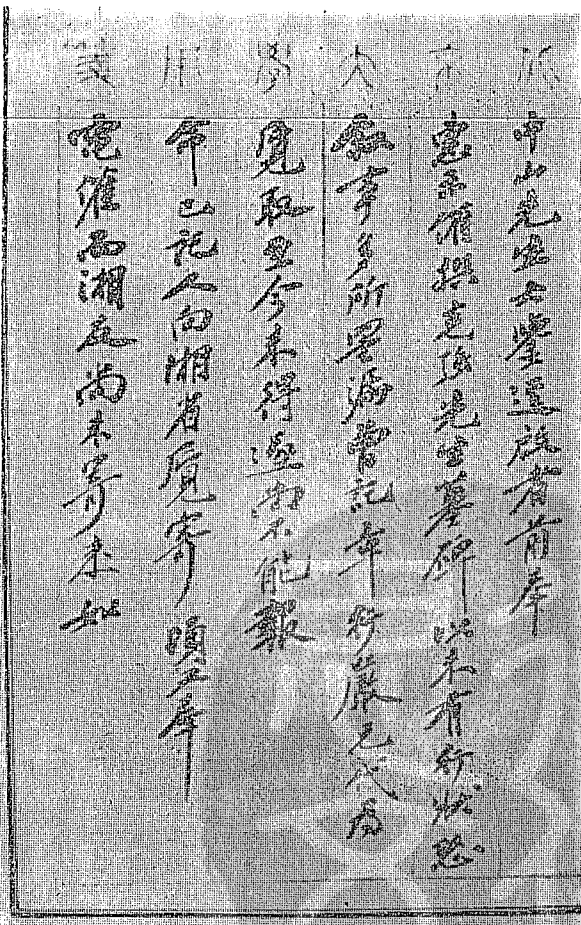 中山先生大鑒逕啟者前奉
惠示催撰克強先生墓碑以未有行狀恐
敘事多所罣漏嘗託章行嚴兄代為
覓取至今未得遂尚不能報
命已託人向湘省覓寄頃又奉
電催而湘友尚未寄來如